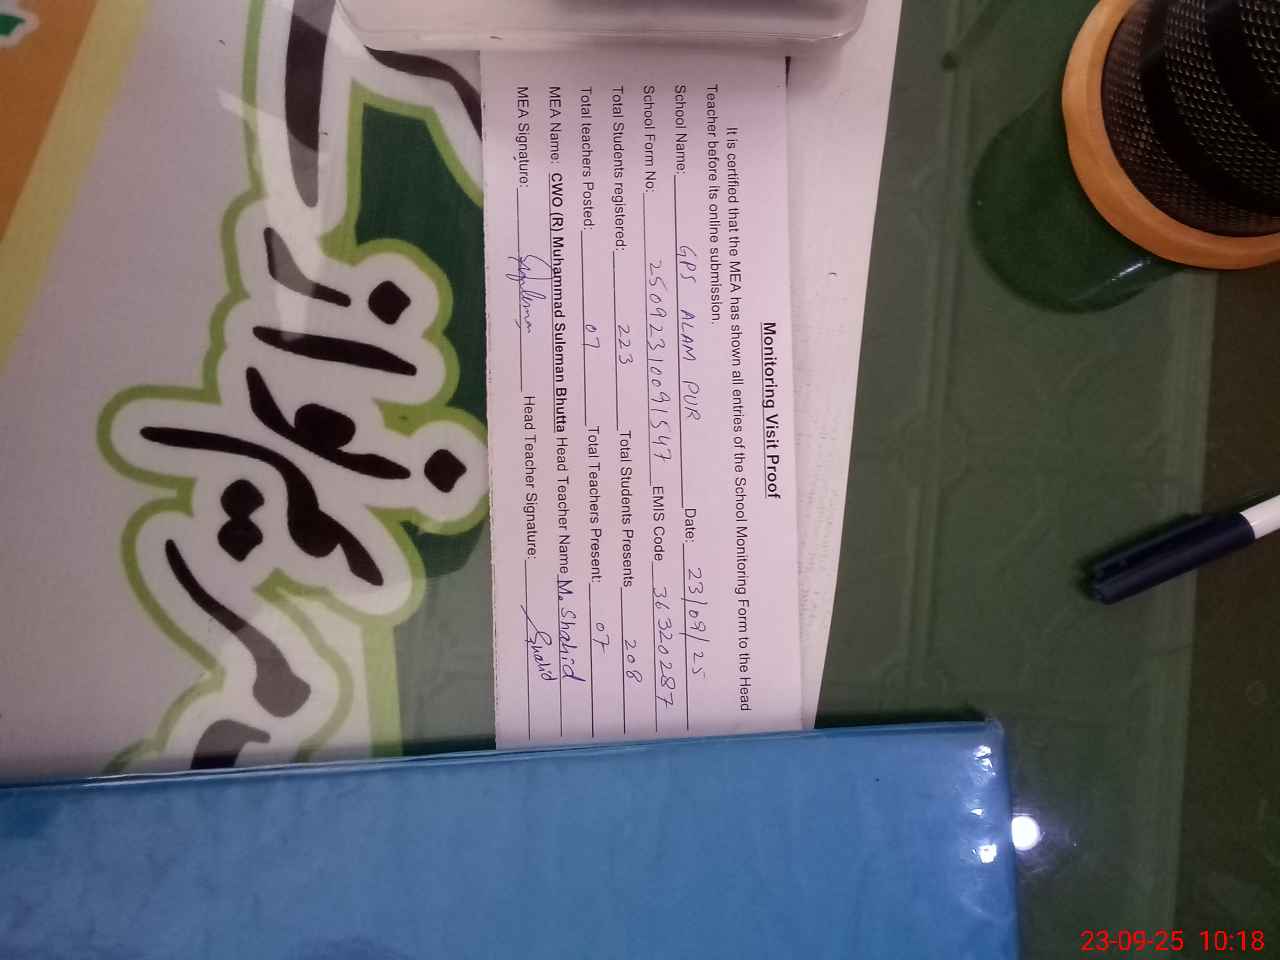 Monitoring Visit Proof
It is certified that the MEA has shown all entries of the School Monitoring Form to the Head
Teacher before its online submission.
School Name: GPS ALAM PUR Date: 23/09/25
School Form No: 25092310091547 EMIS Code 36320287
Total Students registered: 223 Total Students Presents 208
Total teachers Posted: 07 Total Teachers Present: 07
MEA Name: CWO (R) Muhammad Suleman Bhutta Head Teacher Name M. Shahid
MEA Signature: Suleman Head Teacher Signature: Shahid
23-09-25 10:18